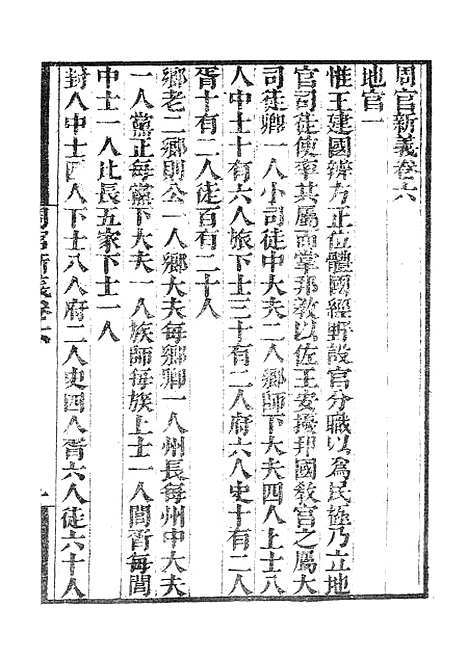 周官新義卷六
地官一
惟王建國辨方正位體國經野設官分職以為民極乃立地
官司徒使率其屬而掌邦敎以佐王安擾邦國敎官之屬大
司徒卿一人小司徒中大夫二人鄉師下大夫四人上士八
人中士十有六人旅下士三十有二人府六人史十有二人
胥十有二人徒百有二十人
鄉老二鄉則公一人鄉大夫每鄉卿一人州長每州中大夫
一人黨正每黨下大夫一人族師每族上士一人閭胥每閭
中士一人比長五家下士一人
封人中士四人下士八人府二人史四人胥六人徒六十人
周官新義卷六
一